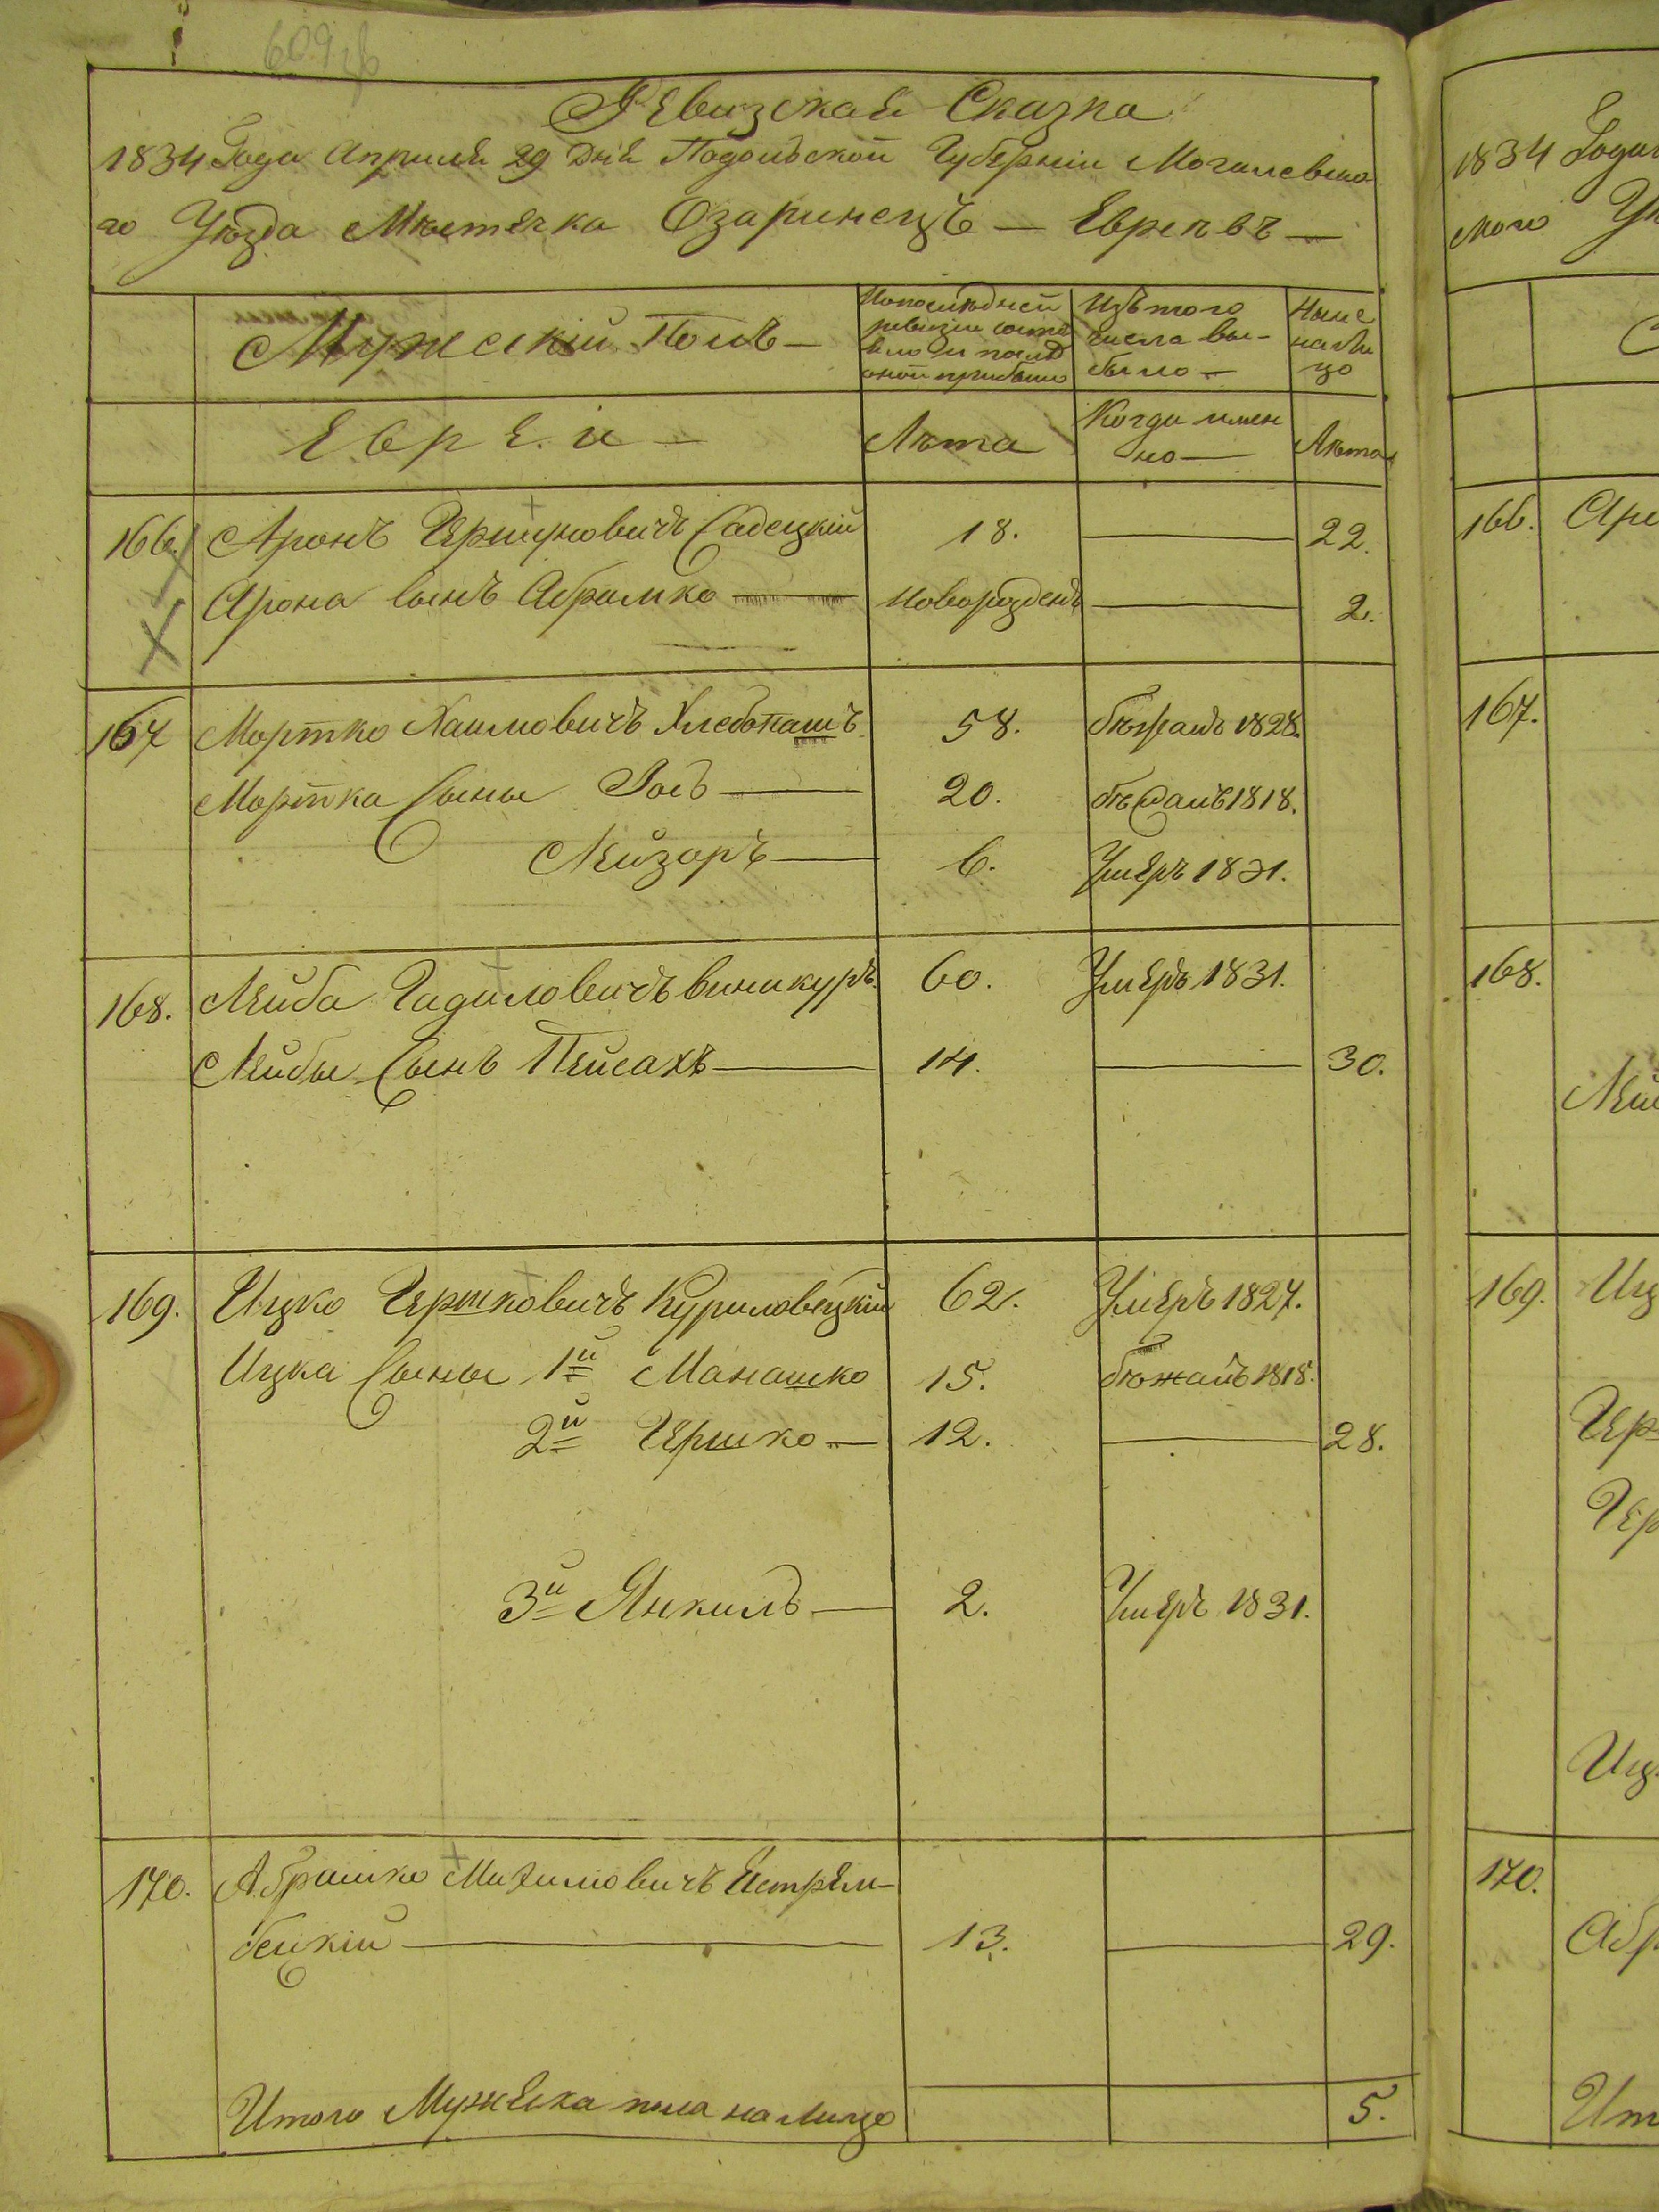 609
Ревизская Сказка
1834 Года Апреля 29 Дня Подольской Губернии Могилевска
го Уезда Местечка Озаринецъ — Евреевъ —
Мужеский Полъ —
По последней
ревизии состо
яло и после
оной прибыло
Изъ того
числа вы-
было —
Ныне
на ли
цо
Еврей —
Лета
Когда имен
но —
Лета
166. Аронъ Гершковичъ Садецкій 18. — 22.
Арона Сынъ Абрамко — Новорожденъ — 2.
167 Мортко Хаимовичъ Хлебопашъ 58. бежалъ 1828.
Мортка Сыны Іосъ — 20. бежалъ 1818.
Лейзоръ — 6. Умеръ 1831.
168. Лейба Гадиловичъ Виникуръ 60. Умеръ 1831.
Лейбы Сынъ Пейсахъ — 14. — 30.
169. Ицко Гершковичъ Куриловецкій 62. Умеръ 1827.
Ицка Сыны 1й Манашко 15. бежалъ 1818.
2й Гершко — 12. — 28.
3й Янкиль — 2. Умеръ 1831.
170. Абрамко Михилиовичъ Ястрем-
бецкій — 13. — 29.
Итого Мужеска пола на лицо 5.
1834 Года
ского
166. Аро
167.
168.
Лей
169. Иц
Гер
Гер
Иц
170.
Абр
Ит